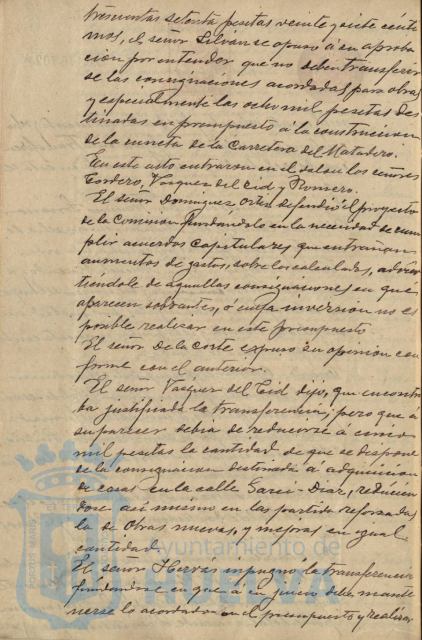 trescientas setenta pesetas veinte y siete cénti
mos, el señor Silván se opuso á su aproba
cion por entender que no deben transferir
se las consignaciones acordadas para obras
y especialmente las ocho mil pesetas des
tinadas en presupuesto á la construccion
de la cuneta de la Carretera del Matadero.
En este acto entraron en el salon los señores
Cordero, Vazquez del Cid y Romero.
El señor Dominguez Ortiz defendió el proyecto
de la Comision fundándolo en la necesidad de cum
plir acuerdos capitulares que entrañan
aumentos de gastos, sobre los calculados, advir
tiéndole de aquellas consignaciones en que
aparecen sobrantes, ó cuya inversion no es
posible realizar en este presupuesto.
El señor de la Corte expuso su opinion con
forme con el anterior.
El señor Vazquez del Cid dijo, que encontra
ba justificada la transferencia; pero que á
su parecer debia de reducirse á cinco
mil pesetas la cantidad de que se dispone
de la consignacion destinada a adquisicion
de casas en la calle Garci-Diaz, reducien
dose asi mismo en las partida reforzada
la de Obras nuevas, y mejoras en igual
cantidad.
El señor Hervas impugno la transferencia
fundandose en que á su juicio debe mante
nerse lo acordado en el presupuesto y realizar
Ayuntamiento de
HUELVA
PORTUS MARIS